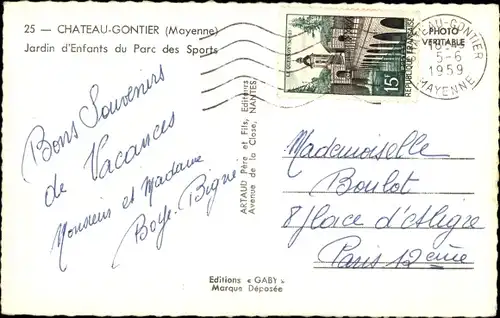 25 — CHATEAU-GONTIER (Mayenne)
Jardin d'Enfants du Parc des Sports
Bons Souvenirs
de Vacances
Monsieur et Madame
Boye-Bigné
ARTAUD Père et Fils, Editeurs
Avenue de la Close, NANTES
Editions « GABY »
Marque Déposée
PHOTO
VERITABLE
CHATEAU-GONTIER
5-6
1959
MAYENNE
REPUBLIQUE FRANÇAISE
15F
LE QUESNOY
Mademoiselle
Boulot
8 place d'Aligre
Paris 12eme